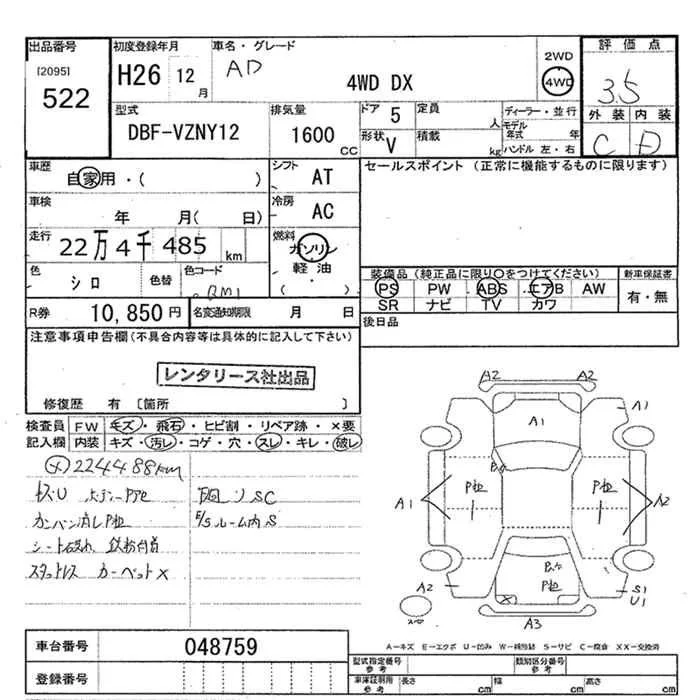 出品番号
[2095]
522
初度登録年月
H26 12
月
車名・グレード
AD
4WD DX
2WD
4WD
評価点
3.5
外装 内装
C D
型式
DBF-VZNY12
排気量
1600
CC
ドア 5
形状 V
定員
人
積載
kg
ディーラー・並行
モデル
年式 年
ハンドル 左・右
車歴
自家用・( )
シフト
AT
セールスポイント (正常に機能するものに限ります)
車検
年 月( 日)
冷房
AC
走行
22万4千485 km
燃料
ガソリン
軽油
( )
色
シロ
色替
色コード
装備品(純正品に限り○をつけてください)
PS PW ABS エアB AW
SR ナビ TV カワ
新車保証書
有・無
R券
10,850 円
名変通知期限
月 日
後日品
注意事項申告欄(不具合内容等は具体的に記入して下さい)
レンタリース社出品
修復歴 有 [箇所 ]
検査員
記入欄
FW キズ・飛石・ヒビ割・リペア跡・×要
内装 キズ・汚レ・コゲ・穴・スレ・キレ・破レ
224488km
カンバン消しP他
シート破れ 鉄粉
スタッドレス カーペット×
ルーム内S
A2 A2
A1
A1
P他
P他
A1
A2
P他
A2
A3
S1
U1
A-キズ E-エクボ U-凹み W-補修跡 S-サビ C-腐食 XX-交換済
車台番号
048759
登録番号
型式指定番号
参考
類別区分番号
参考
車庫証明用
参考
長さ cm
幅 cm
高さ cm